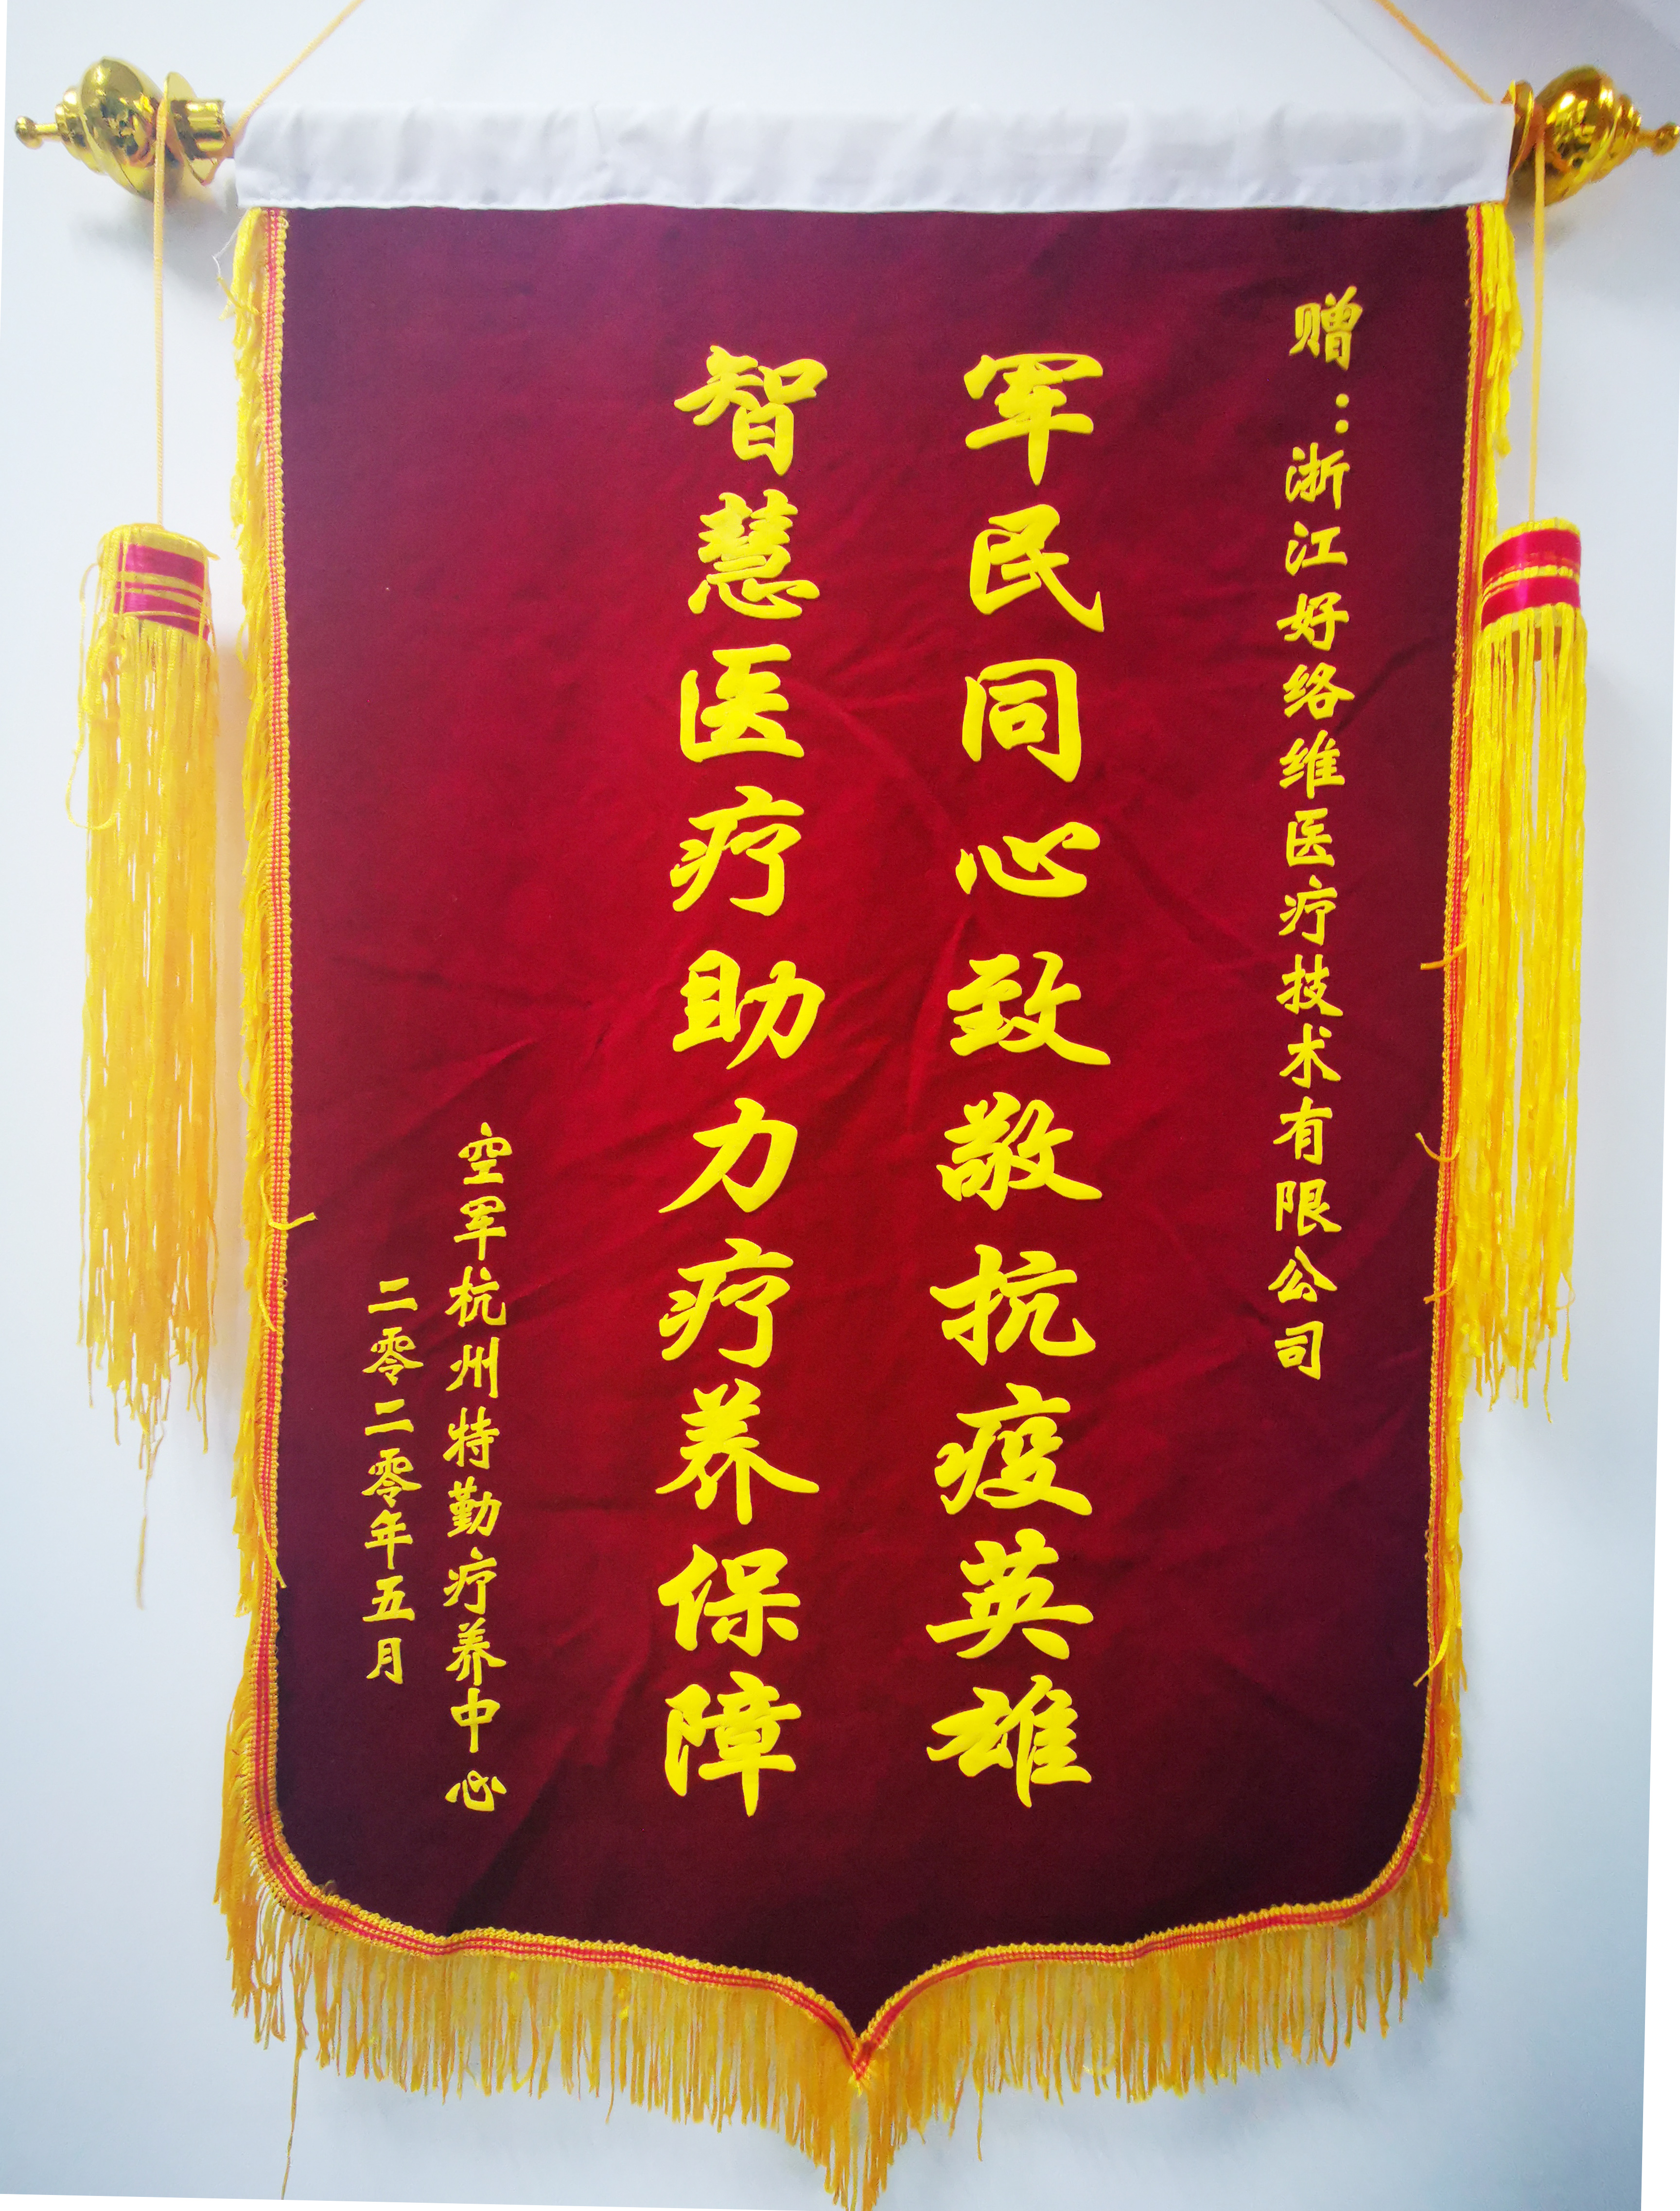 赠：浙江好络维医疗技术有限公司
军民同心致敬抗疫英雄
智慧医疗助力疗养保障
空军杭州特勤疗养中心
二零二零年五月